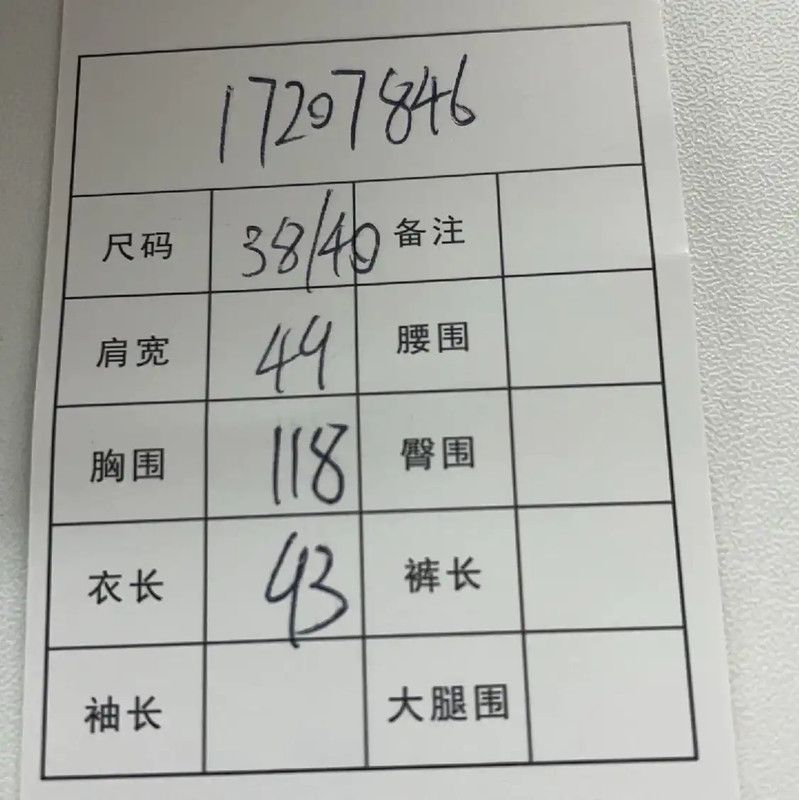 17207846
尺码 38/40 备注
肩宽 44 腰围
胸围 118 臀围
衣长 43 裤长
袖长 大腿围